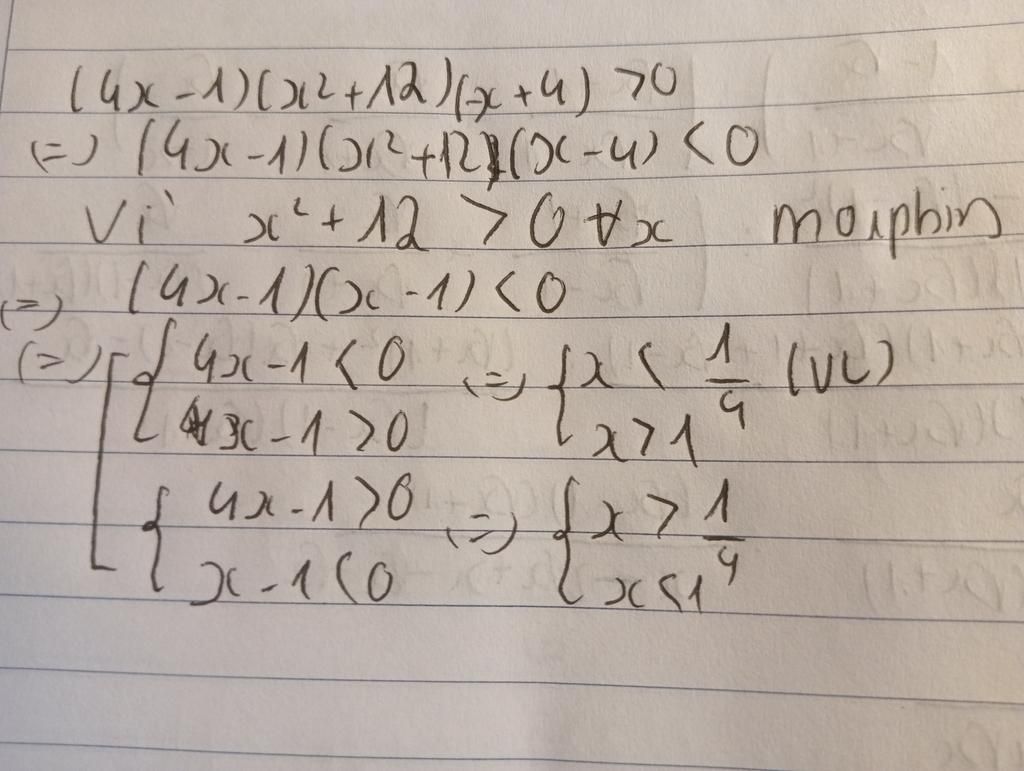 (4x-1)(x²+12)(-x+4) >0
(=) (4x-1)(x²+12)(x-4) <0
Vì x²+12 >0 ∀x moiphin
(=) (4x-1)(x-1) <0
(=) [ { 4x-1<0 (=) { x < 1/4 (VL)
x-1>0 x>1
{ 4x-1>0 (=) { x > 1/4
x-1<0 x<1